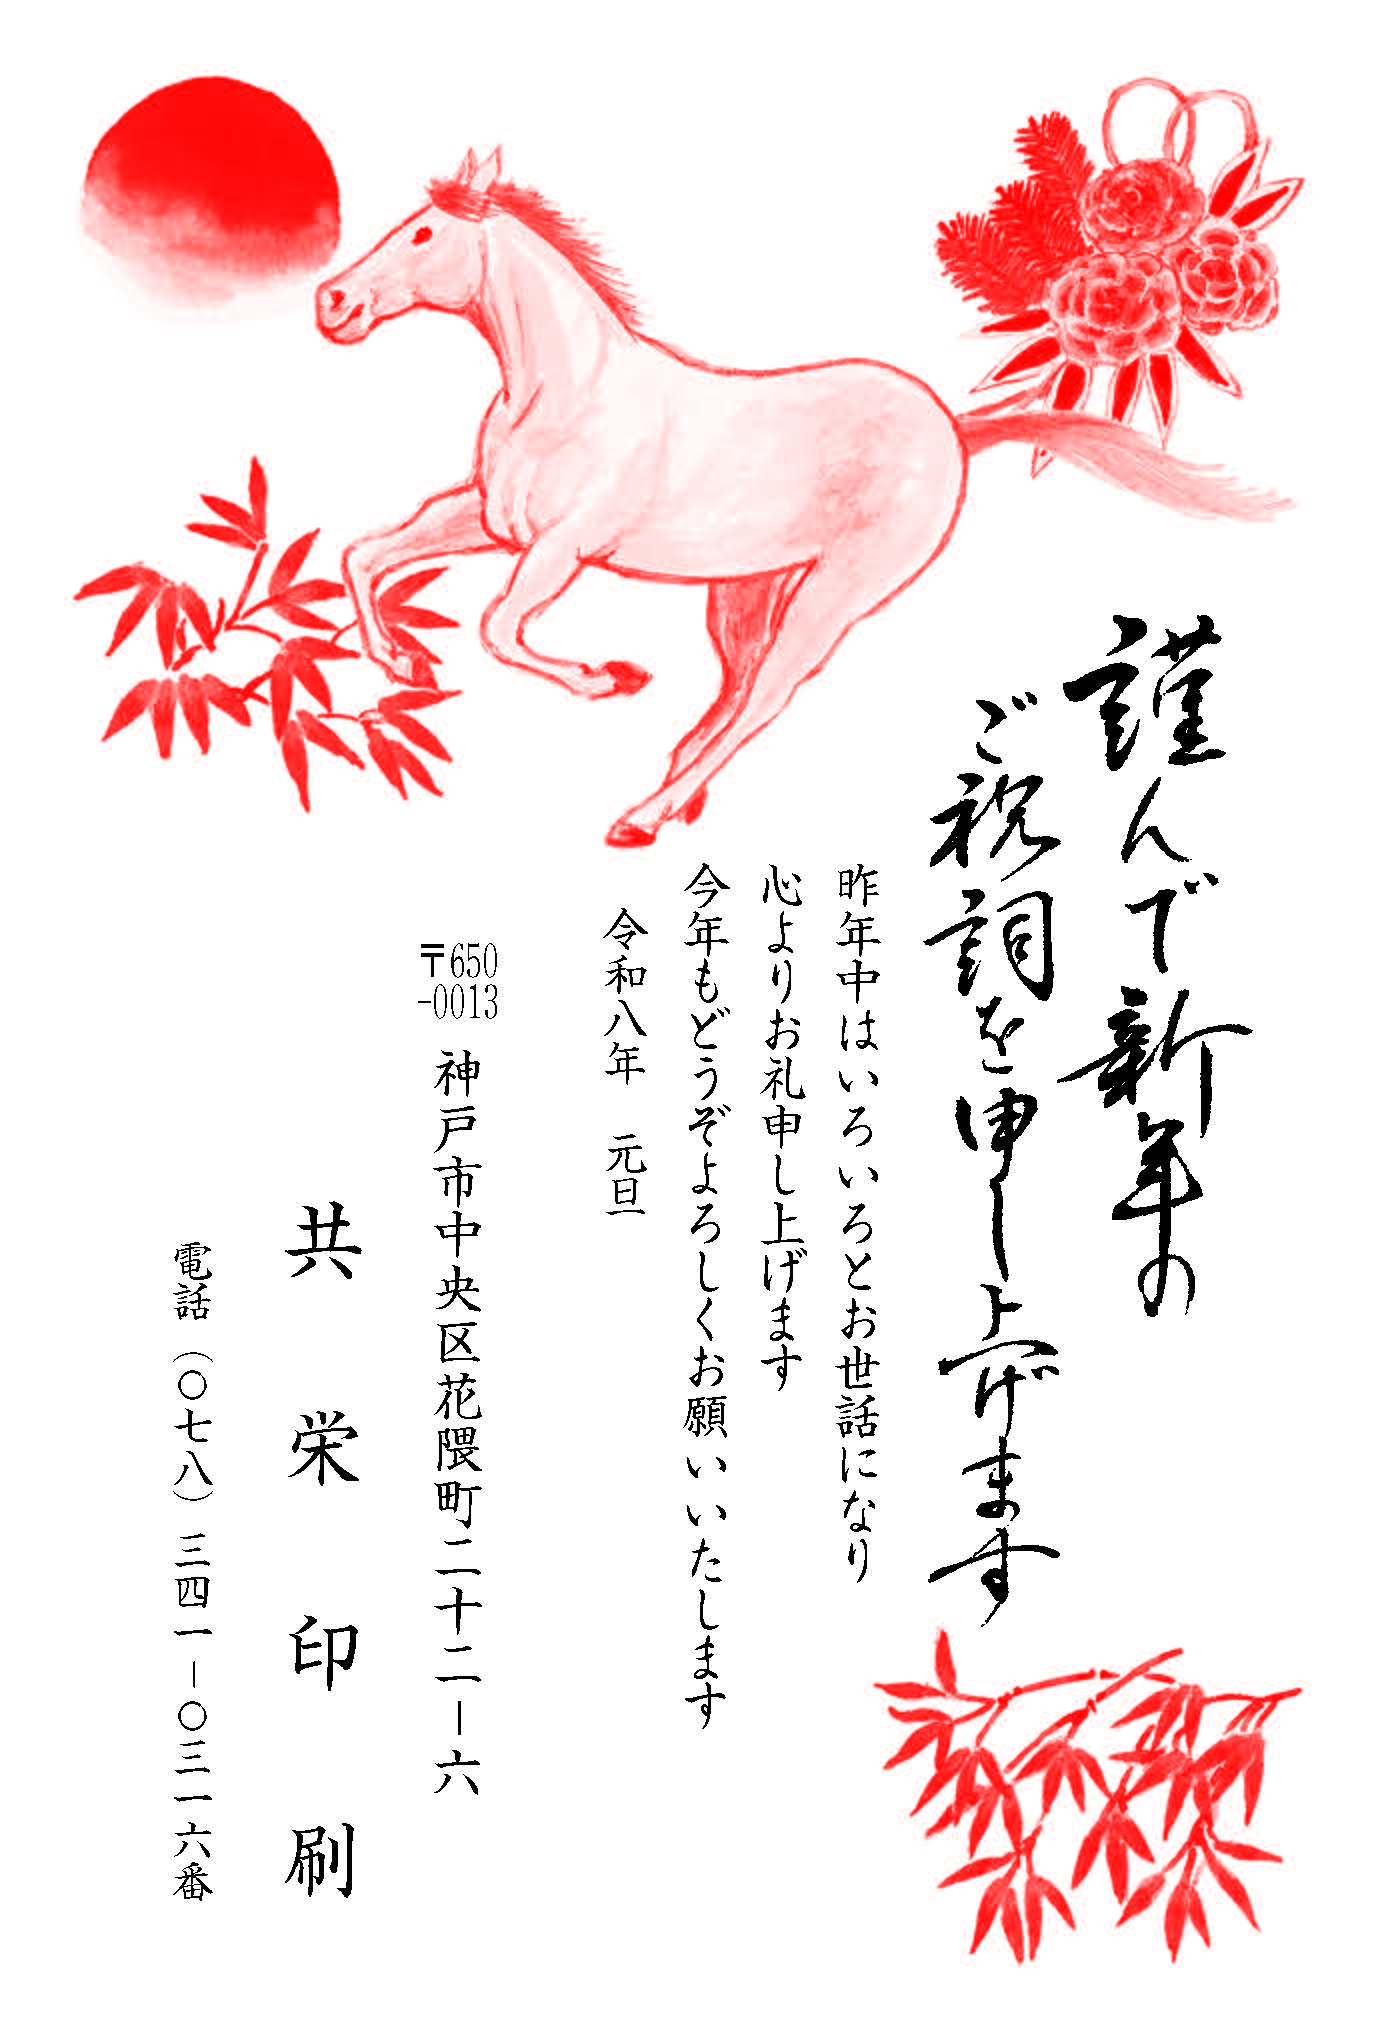 謹んで新年の
ご祝詞を申し上げます
昨年中はいろいろとお世話になり
心よりお礼申し上げます
今年もどうぞよろしくお願いいたします
令和八年　元旦
〒650
-0013
神戸市中央区花隈町二十二－六
共栄印刷
電話（〇七八）三四一－〇三一六番